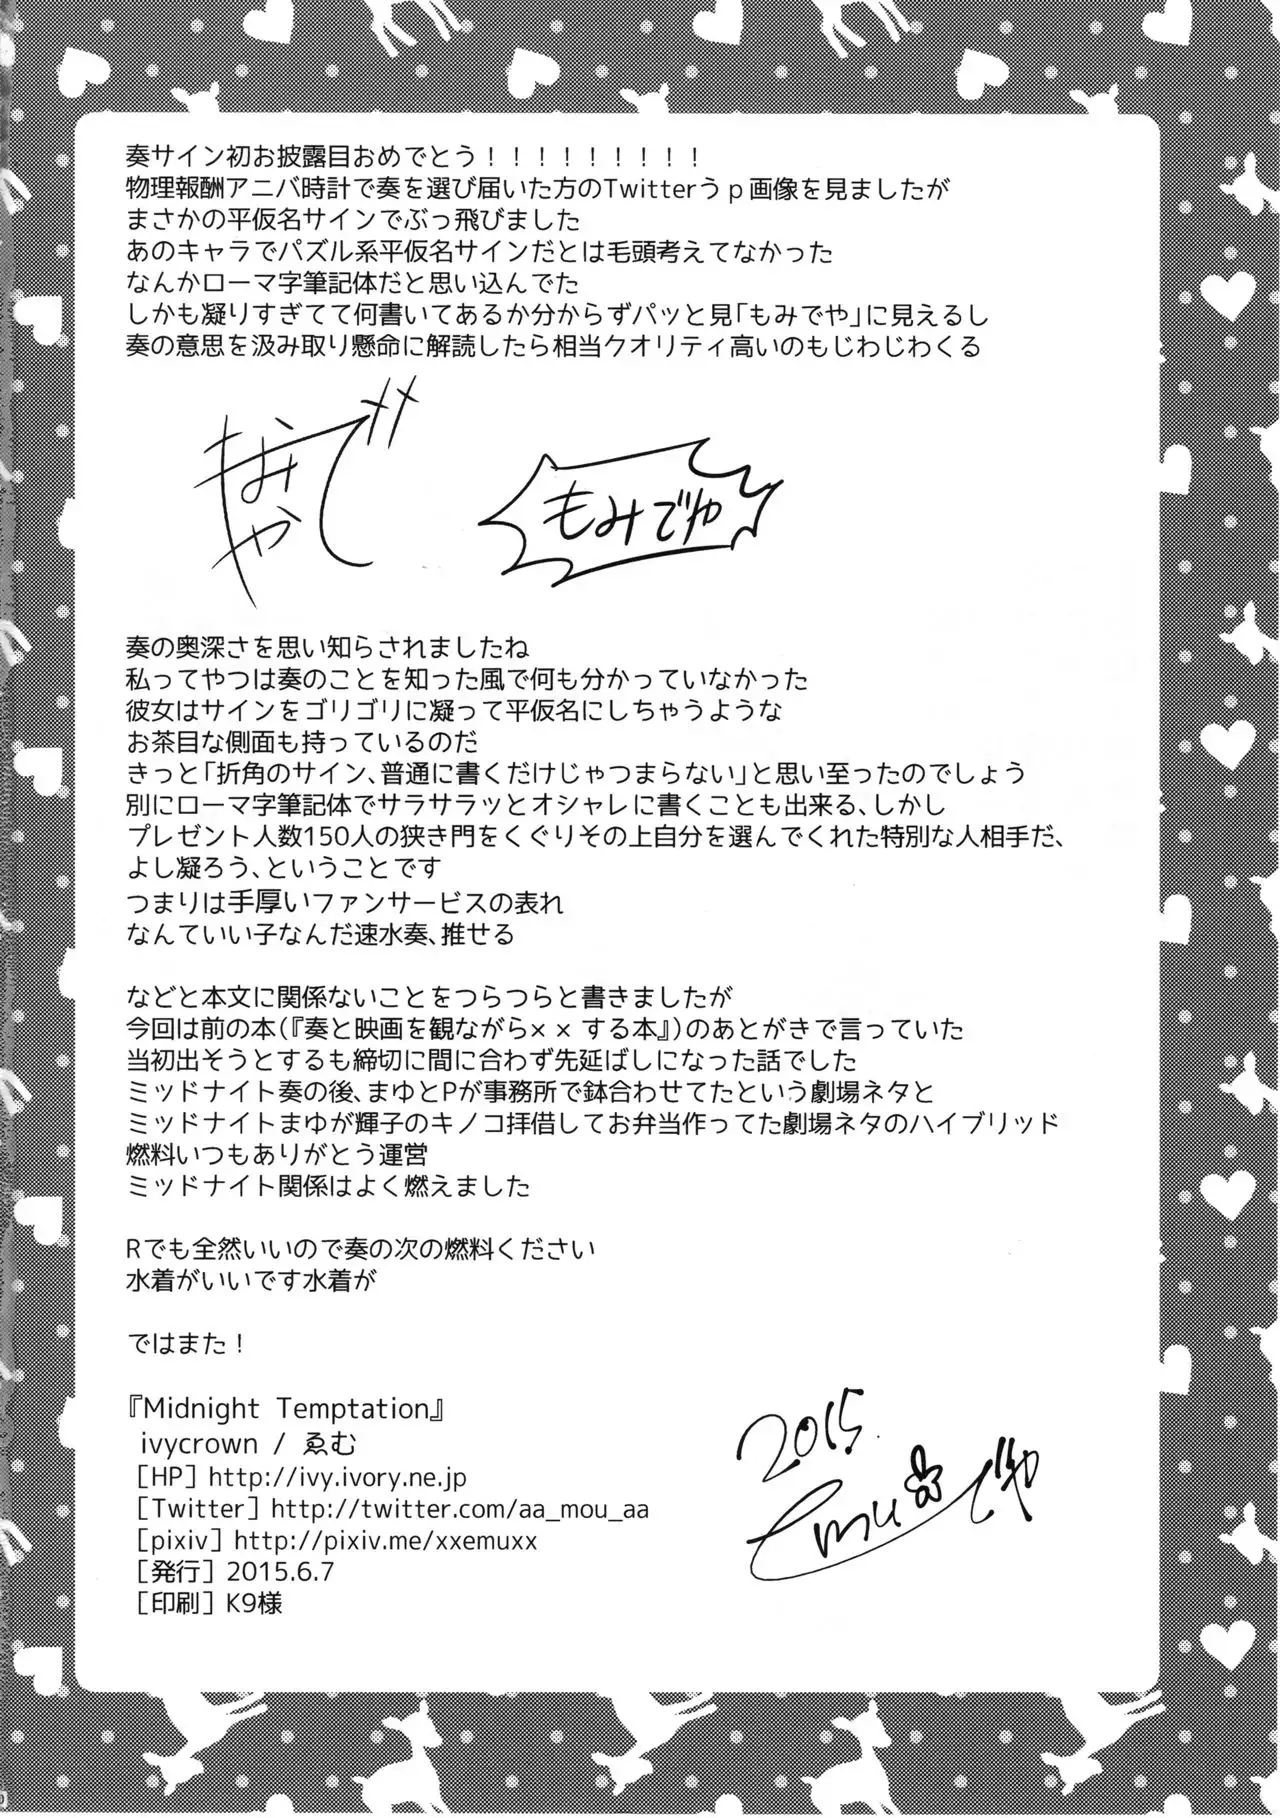 奏サイン初お披露目おめでとう！！！！！！！！！
物理報酬アニバ時計で奏を選び届いた方のTwitterうｐ画像を見ましたが
まさかの平仮名サインでぶっ飛びました
あのキャラでパズル系平仮名サインだとは毛頭考えてなかった
なんかローマ字筆記体だと思い込んでた
しかも凝りすぎてて何書いてあるか分からずパッと見「もみでや」に見えるし
奏の意思を汲み取り懸命に解読したら相当クオリティ高いのもじわじわくる
もみでや
奏の奥深さを思い知らされましたね
私ってやつは奏のことを知った風で何も分かっていなかった
彼女はサインをゴリゴリに凝って平仮名にしちゃうような
お茶目な側面も持っているのだ
きっと「折角のサイン、普通に書くだけじゃつまらない」と思い至ったのでしょう
別にローマ字筆記体でサラサラッとオシャレに書くことも出来る、しかし
プレゼント人数150人の狭き門をくぐりその上自分を選んでくれた特別な人相手だ、
よし凝ろう、ということです
つまりは手厚いファンサービスの表れ
なんていい子なんだ速水奏、推せる
などと本文に関係ないことをつらつらと書きましたが
今回は前の本（『奏と映画を観ながら××する本』）のあとがきで言っていた
当初出そうとするも締切に間に合わず先延ばしになった話でした
ミッドナイト奏の後、まゆとPが事務所で鉢合わせてたという劇場ネタと
ミッドナイトまゆが輝子のキノコ拝借してお弁当作ってた劇場ネタのハイブリッド
燃料いつもありがとう運営
ミッドナイト関係はよく燃えました
Rでも全然いいので奏の次の燃料ください
水着がいいです水着が
ではまた！
『Midnight Temptation』
ivycrown / ゑむ
［HP］http://ivy.ivory.ne.jp
［Twitter］http://twitter.com/aa_mou_aa
［pixiv］http://pixiv.me/xxemuxx
［発行］2015.6.7
［印刷］K9様
2015.
Emu
でや